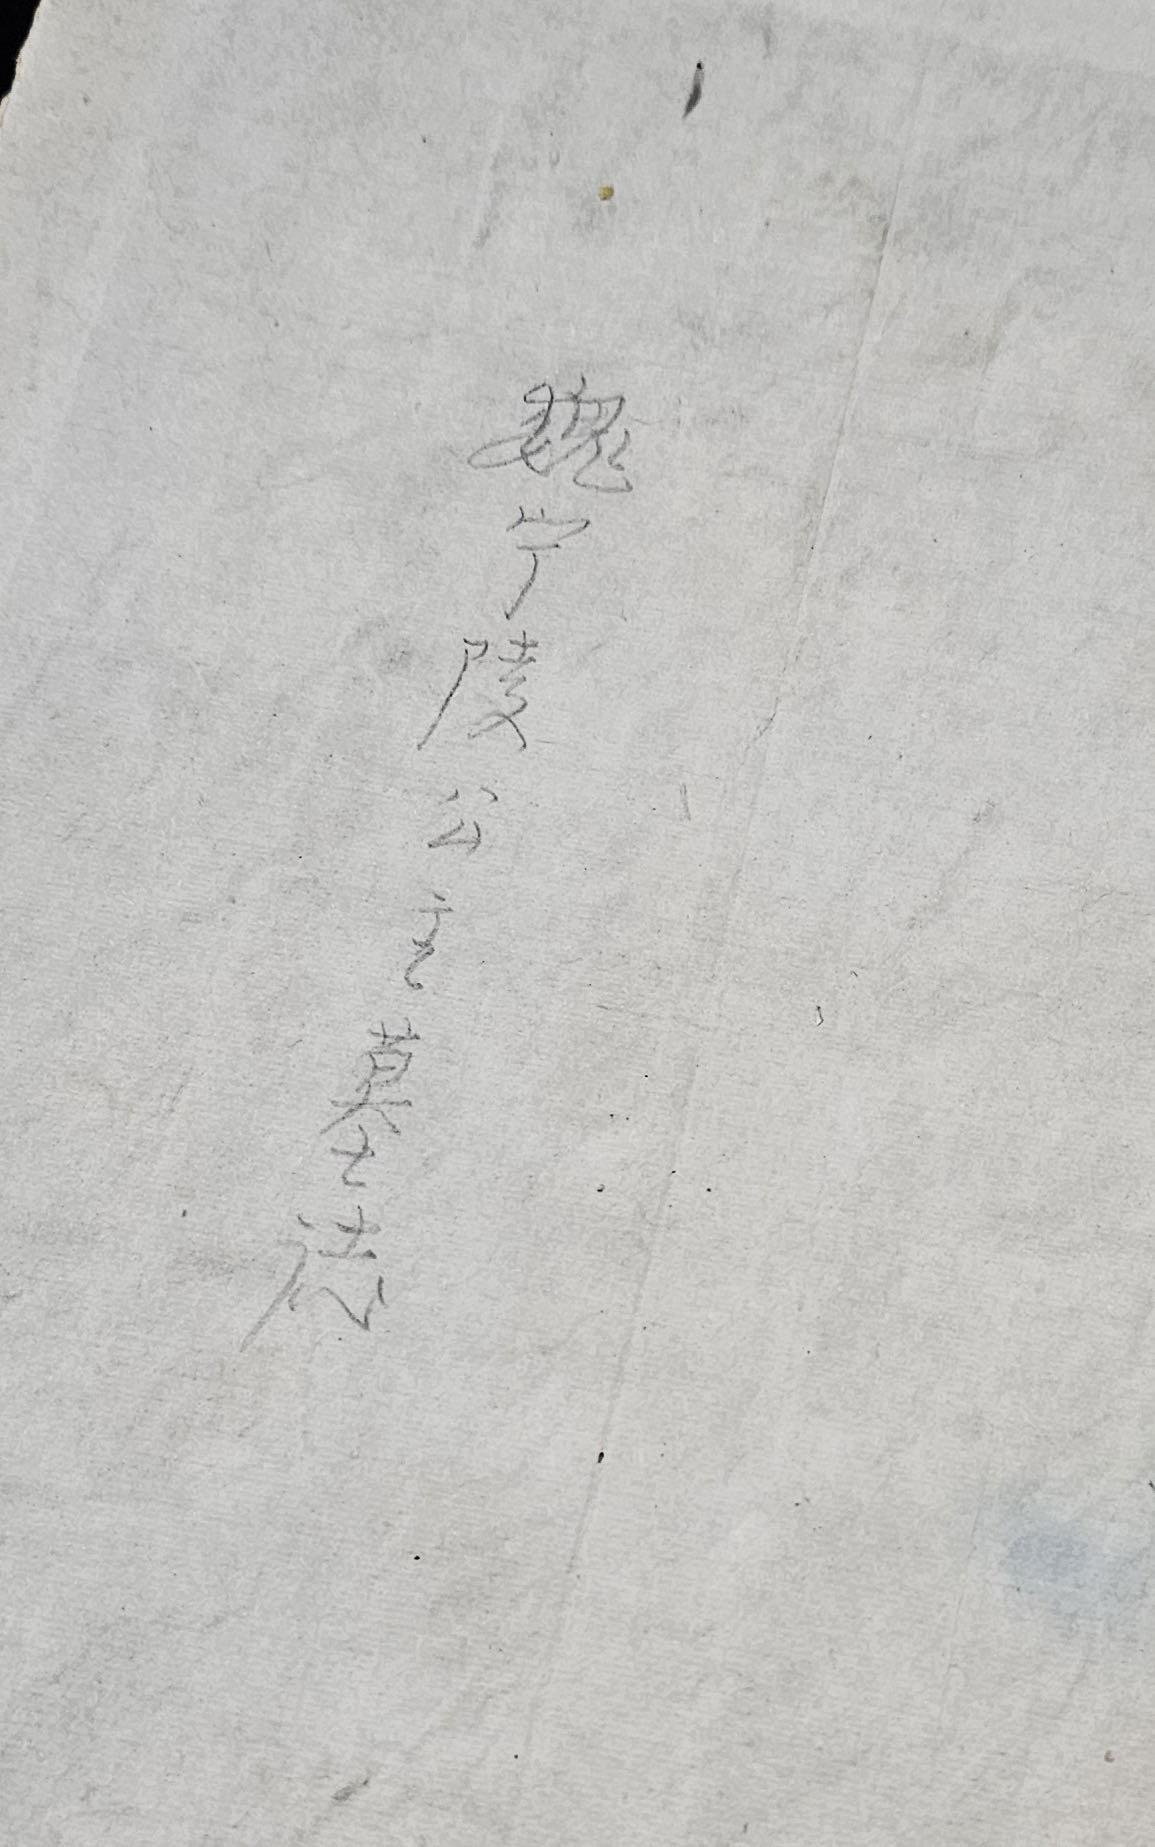 魏宁陵公主墓志